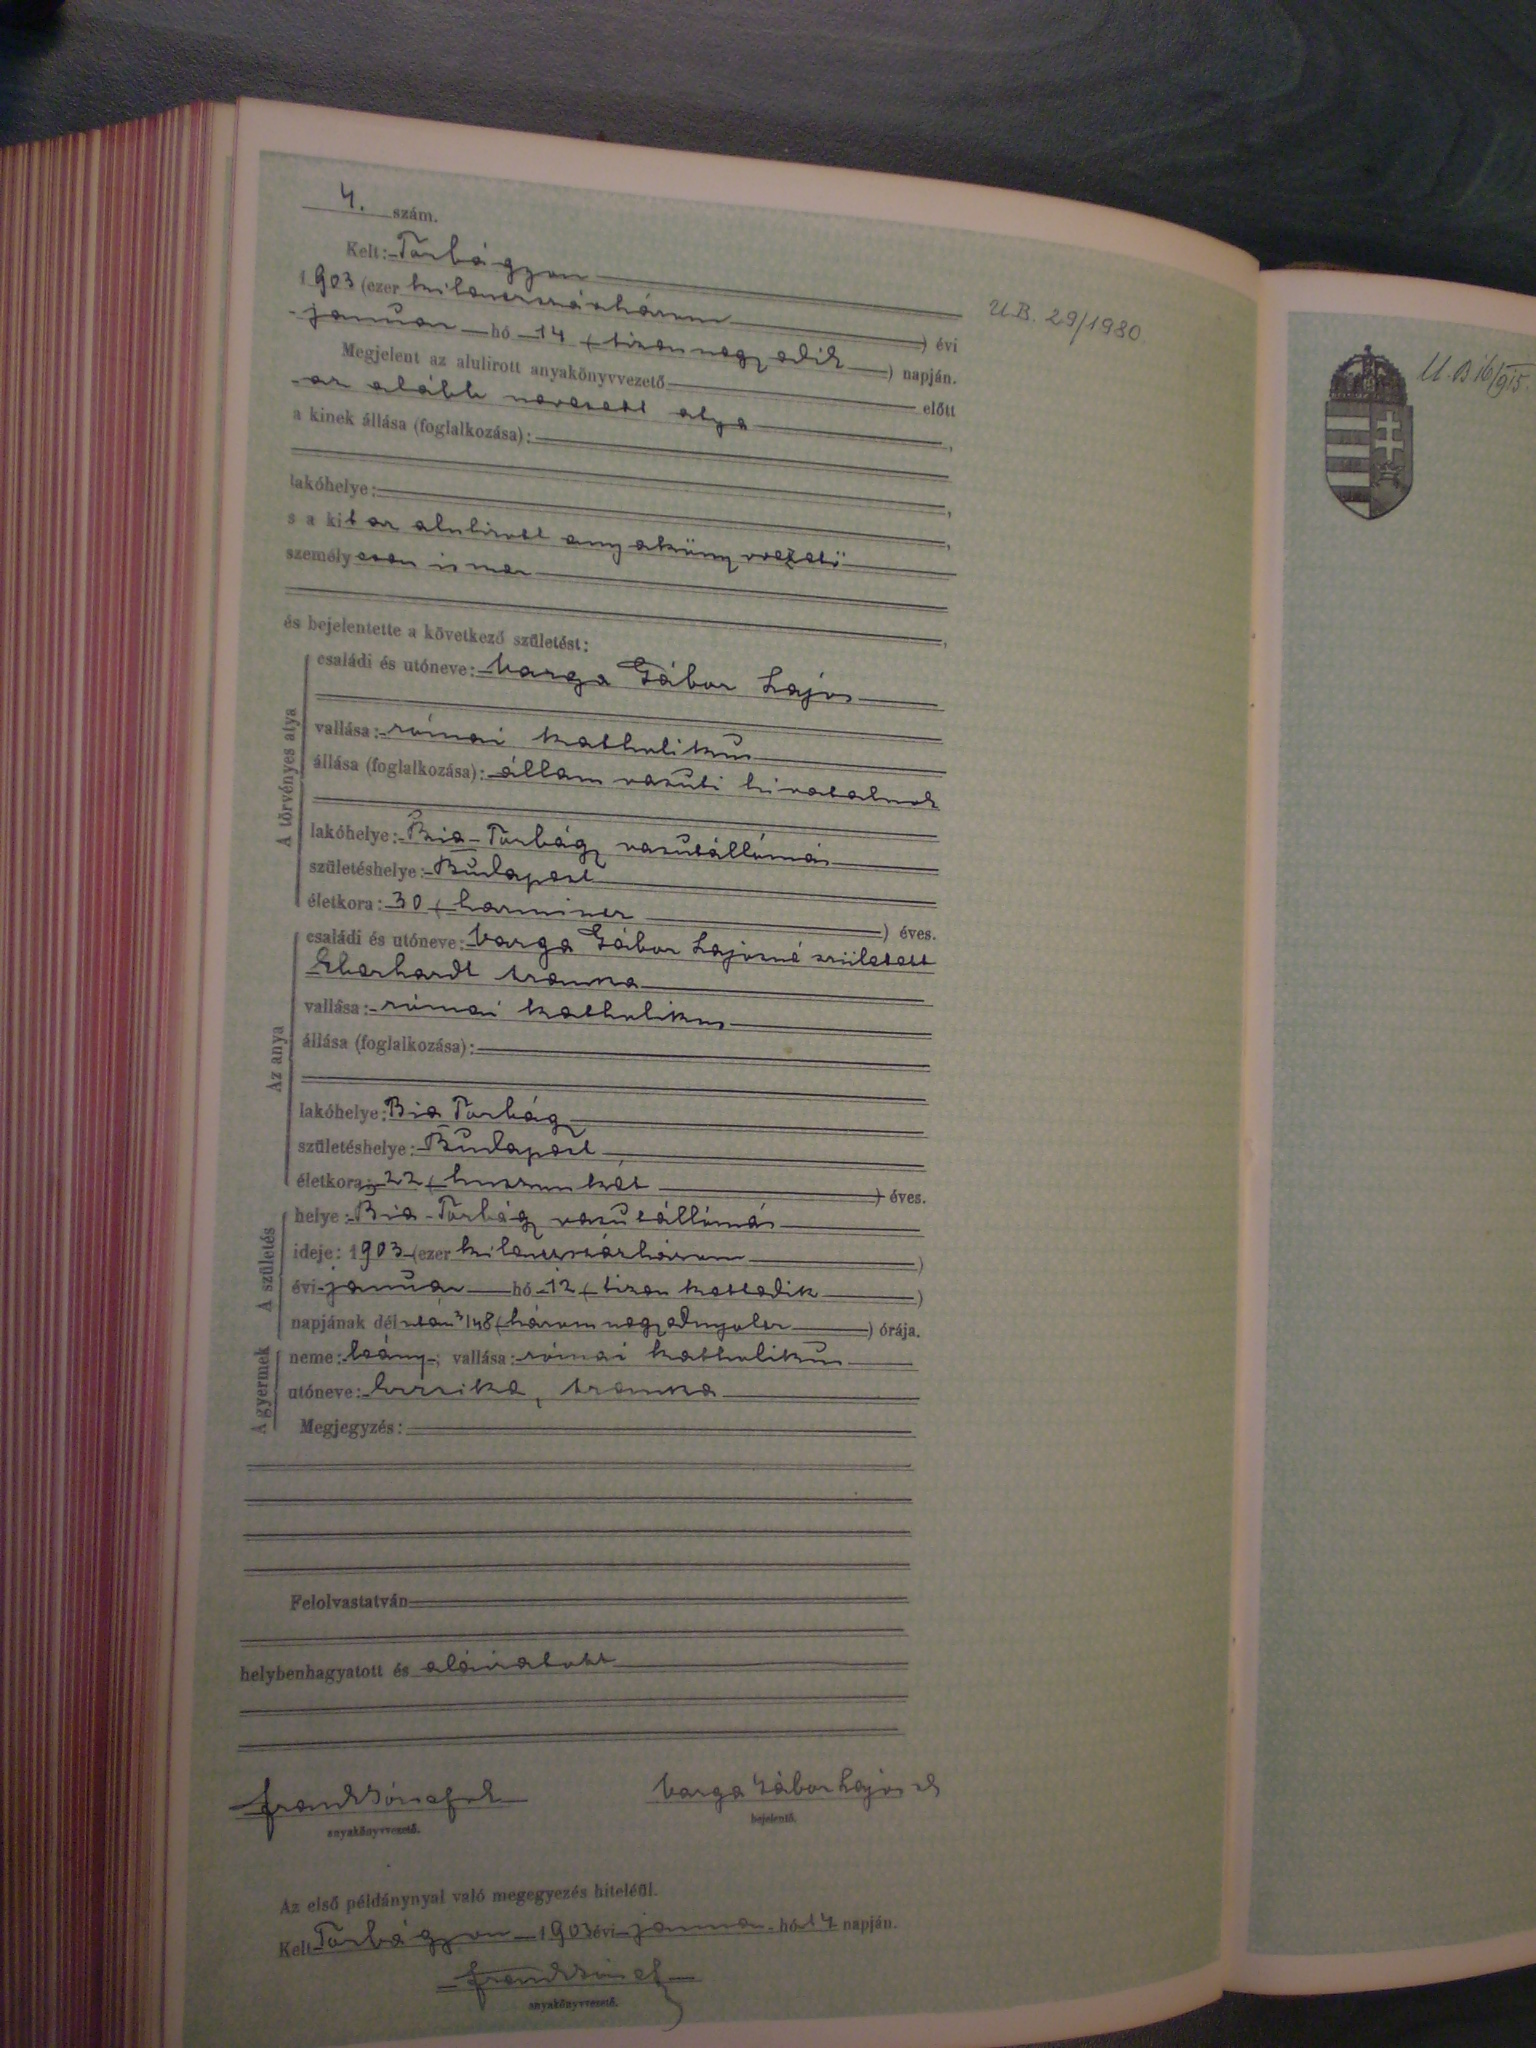 4. szám.
Kelt: Torbágyon
1903 (ezer kilencszázhárom) évi
U.B. 29/1980
január hó 14 (tizennegyedik) napján.
Megjelent az alulirott anyakönyvvezető előtt
az alább nevezett atya,
a kinek állása (foglalkozása):
lakóhelye:
s a kit az alulirott anyakönyvvezető
személyesen ismer
és bejelentette a következő születést:
A törvényes atya
családi és utóneve: Varga Gábor Lajos
vallása: római katholikus
állása (foglalkozása): állam vasuti hivatalnok
lakóhelye: Bia-Torbágy vasutállomás
születéshelye: Budapest
életkora: 30 (harmincz) éves.
Az anya
családi és utóneve: Varga Gábor Lajosné született
Eberhardt Iranka
vallása: római katholikus
állása (foglalkozása):
lakóhelye: Bia Torbágy
születéshelye: Budapest
életkora: 22 (huszonkét) éves.
A születés
helye: Bia-Torbágy vasutállomás
ideje: 1903 (ezer kilencszázhárom)
évi január hó 12 (tizenkettedik)
napjának délután 3/4 8 (háromnegyednyolcz) órája.
A gyermek
neme: leány; vallása: római katholikus
utóneve: Iranka
Megjegyzés:
Felolvastatván
helybenhagyatott és aláiratott
Frank József sk
anyakönyvvezető.
Varga Gábor Lajos sk
bejelentő.
Az első példánynyal való megegyezés hiteléül.
Kelt Torbágyon 1903 évi január hó 14 napján.
Frank József
anyakönyvvezető.
U.B 16/915.